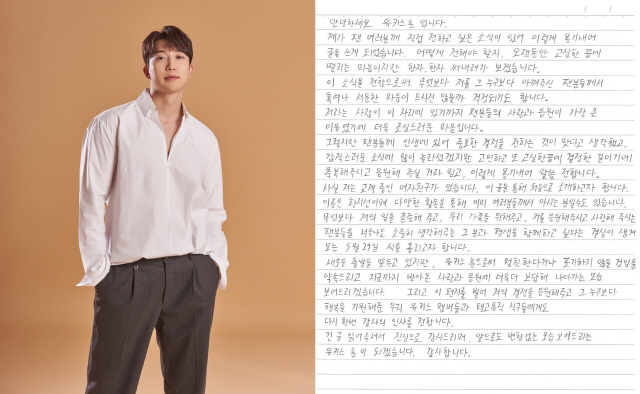 안녕하세요 유키스 훈 입니다.
제가 팬 여러분께 직접 전하고 싶은 소식이 있어 이렇게 용기내어
글을 쓰게 되었습니다. 어떻게 전해야 할지, 오랫동안 고심한 끝에
떨리는 마음이지만 한자, 한자 써내려가 보겠습니다.
이 소식을 전함으로써 무엇보다 저를 그 누구보다 아껴주신 팬분들께서
혹여나 서운한 마음이 드시진 않을까 걱정되기도 합니다.
저라는 사람이 이 자리에 있기까지 팬분들의 사랑과 응원이 가장 큰
이유였기에 더욱 조심스러운 마음입니다.
그렇지만 팬분들께 인생에 있어 중요한 결정을 전하는 것이 맞다고 생각했고,
갑작스러운 소식에 많이 놀라셨겠지만 고민하고 또 고심한끝에 결정한 일이기에
축복해주시고 응원해 주실 거라 믿고, 이렇게 용기내어 말씀 전합니다.
사실 저는 교제 중인 여자친구가 있습니다. 이 글을 통해 처음으로 소개하고자 합니다.
이름은 황지선이며 다양한 활동을 통해 이미 여러분들께서 아시는 분일수도 있습니다.
무엇보다 저의 일을 존중해 주고, 우리 가족을 위해주고, 저를 응원해주시고 사랑해 주시는
팬분들을 너무나도 소중히 생각해주는 그 분과 평생을 함께하고 싶다는 결심이 생겨
오는 5월 29일 식을 올리고자 합니다.
새로운 출발을 앞두고 있지만, 유키스 훈으로서 멈칫한다거나 포기하지 않을 것임을
약속드리고 지금까지 받아온 사랑과 응원에 더욱더 보답해 나아가는 모습
보여드리겠습니다. 그리고 이 편지를 빌어 저의 결정을 응원해주고 그 누구보다
행복을 기원해준 우리 유키스 멤버들과 탱고뮤직 식구들에게도
다시 한번 감사의 인사를 전합니다.
긴 글 읽어주셔서 진심으로 감사드리며, 앞으로도 변함없는 모습 보여드리는
유키스 훈 이 되겠습니다. 감사합니다.